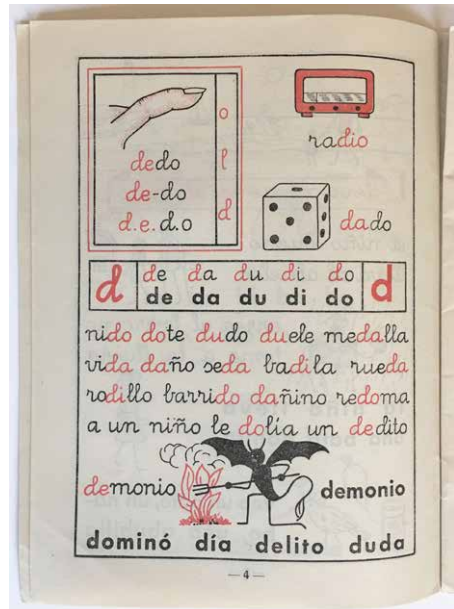 dedo
de-do
d.e.d.o
o
l
d
radio
dado
d
de da du di do
de da du di do
d
nido dote dudo duele medalla
vida daño seda badila rueda
rodillo barrido dañino redoma
a un niño le dolía un dedito
demonio
demonio
dominó día delito duda
— 4 —